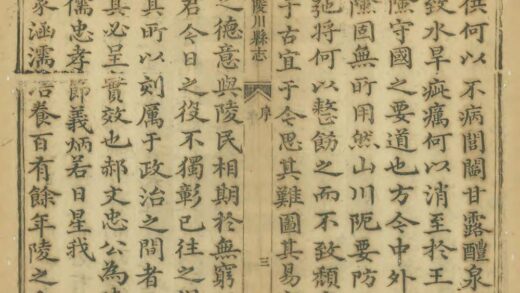 供何以不病閭閻甘露醴泉
致水旱疵癘何以消至於王
險守國之要道也方今中外
險固無所用然山川阨要防
弛將何以整飭之而不致頽
于古宜于今思其難圖其易
陵川縣志 序 三
之德意與陵民相期於無窮
君今日之役不獨彰已往之
其所以刻厲于政治之間者
其必呈實效也郝文忠公為
儒忠孝節義炳若日星我
家涵濡培養百有餘年陵之